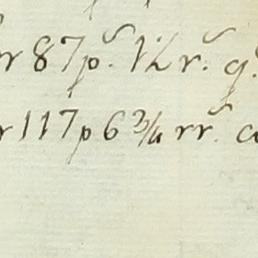 r 87 p.s 1½ r.s q.
r 117 p 6 3/4 rr.s c